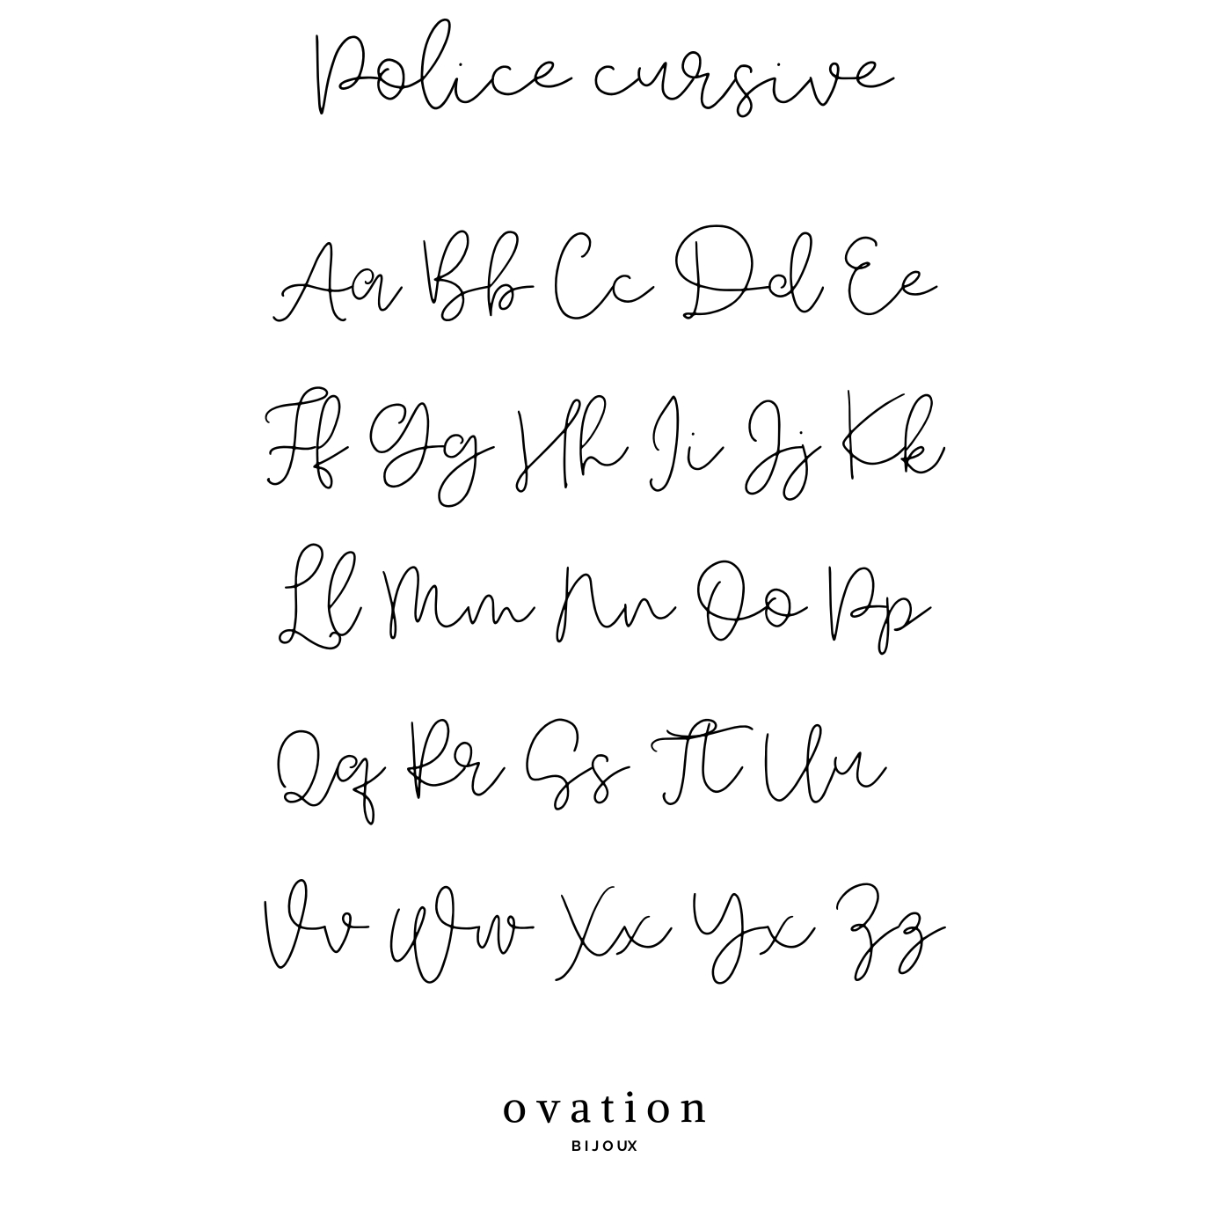 Police cursive
Aa Bb Cc Dd Ee
Ff Gg Hh Ii Jj Kk
Ll Mm Nn Oo Pp
Qq Rr Ss Tt Uu
Vv Ww Xx Yx Zz
ovation
BIJOUX